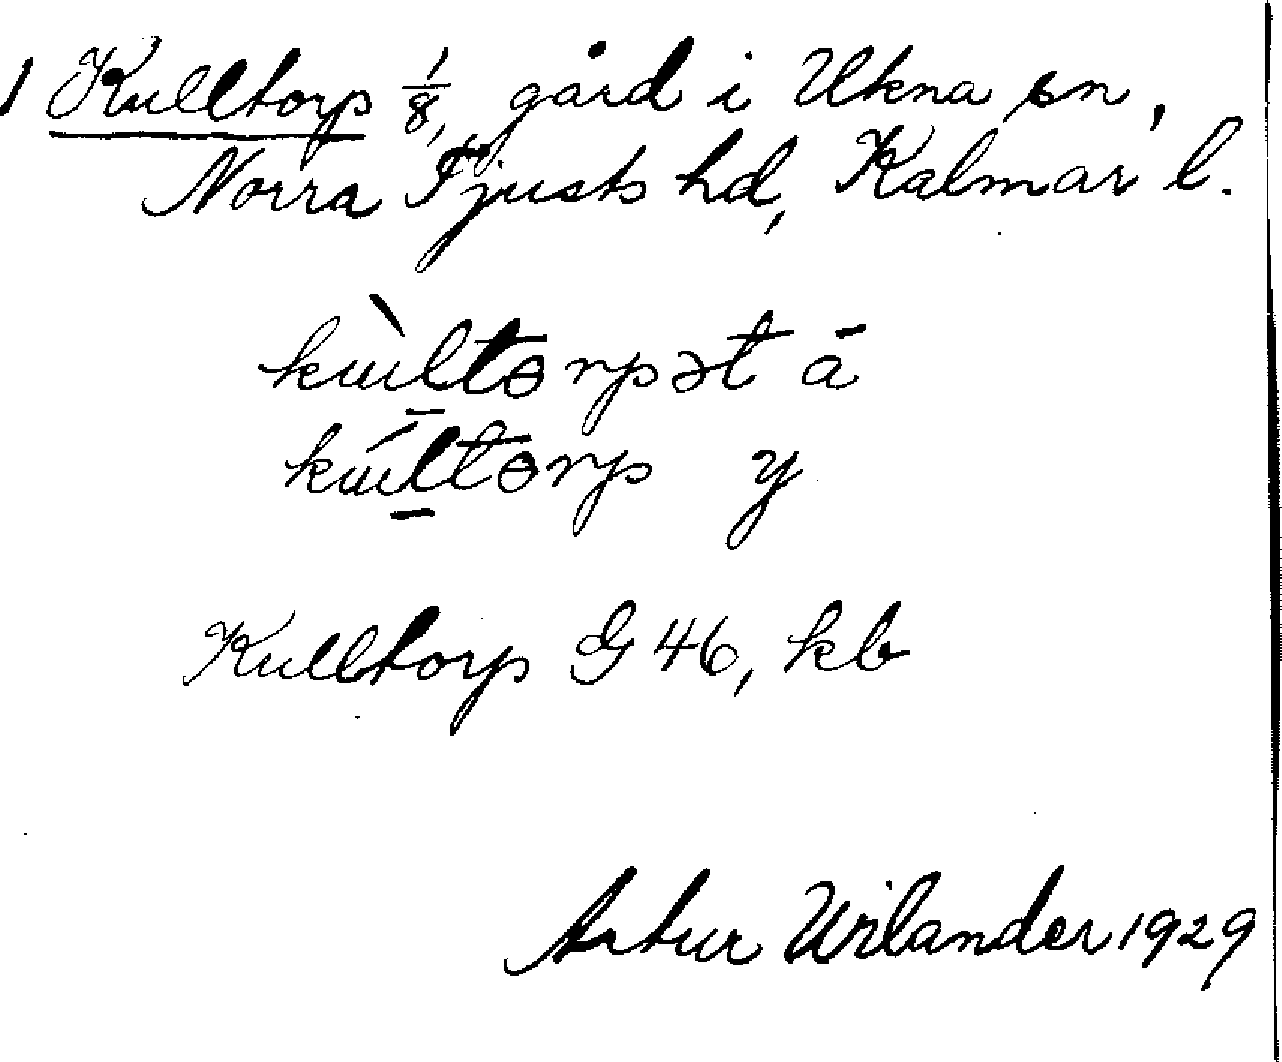 1 Kulltorp 1/8, gård i Ukna sn,
Norra Tjusts hd, Kalmar l.
kùltɵrpət ā
kúltɵrp y
Kulltorp G 46, kb
Artur Wilander 1929